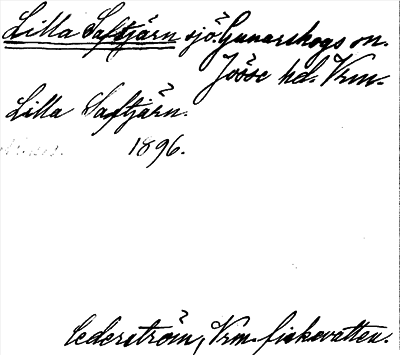 Lilla Saftjärn sjö. Gunarskogs sn.
Jösse hd. Vrm.
Lilla Saftjärn.
1896.
Cederström, Vrm. fiskevatten.